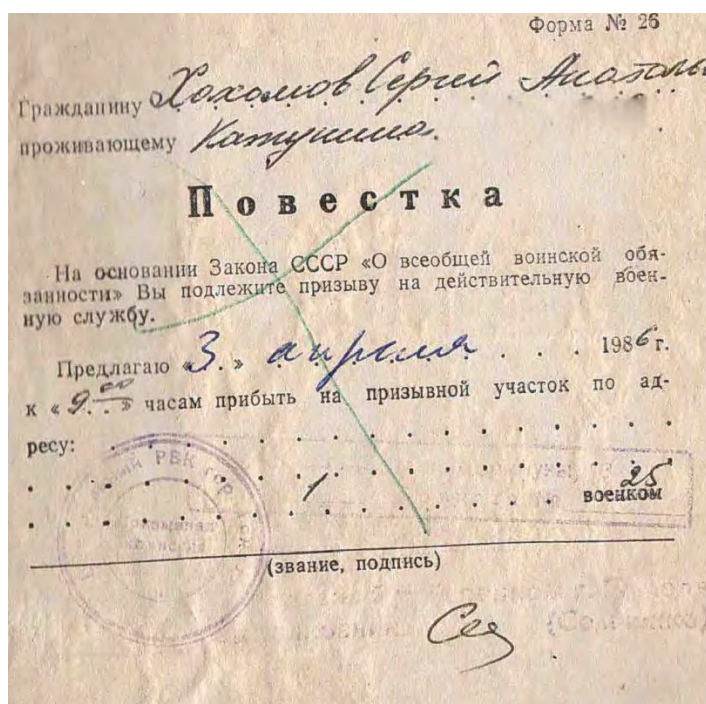 Форма № 26
Гражданину Хохолков Сергей Анатоль
проживающему
Повестка
На основании Закона СССР «О всеобщей воинской обя-
занности» Вы подлежите призыву на действительную воен-
ную службу.
Предлагаю «3.» апреля . . . 1986 г.
к «9.00» часам прибыть на призывной участок по ад-
ресу:
1 25
военком
(звание, подпись)